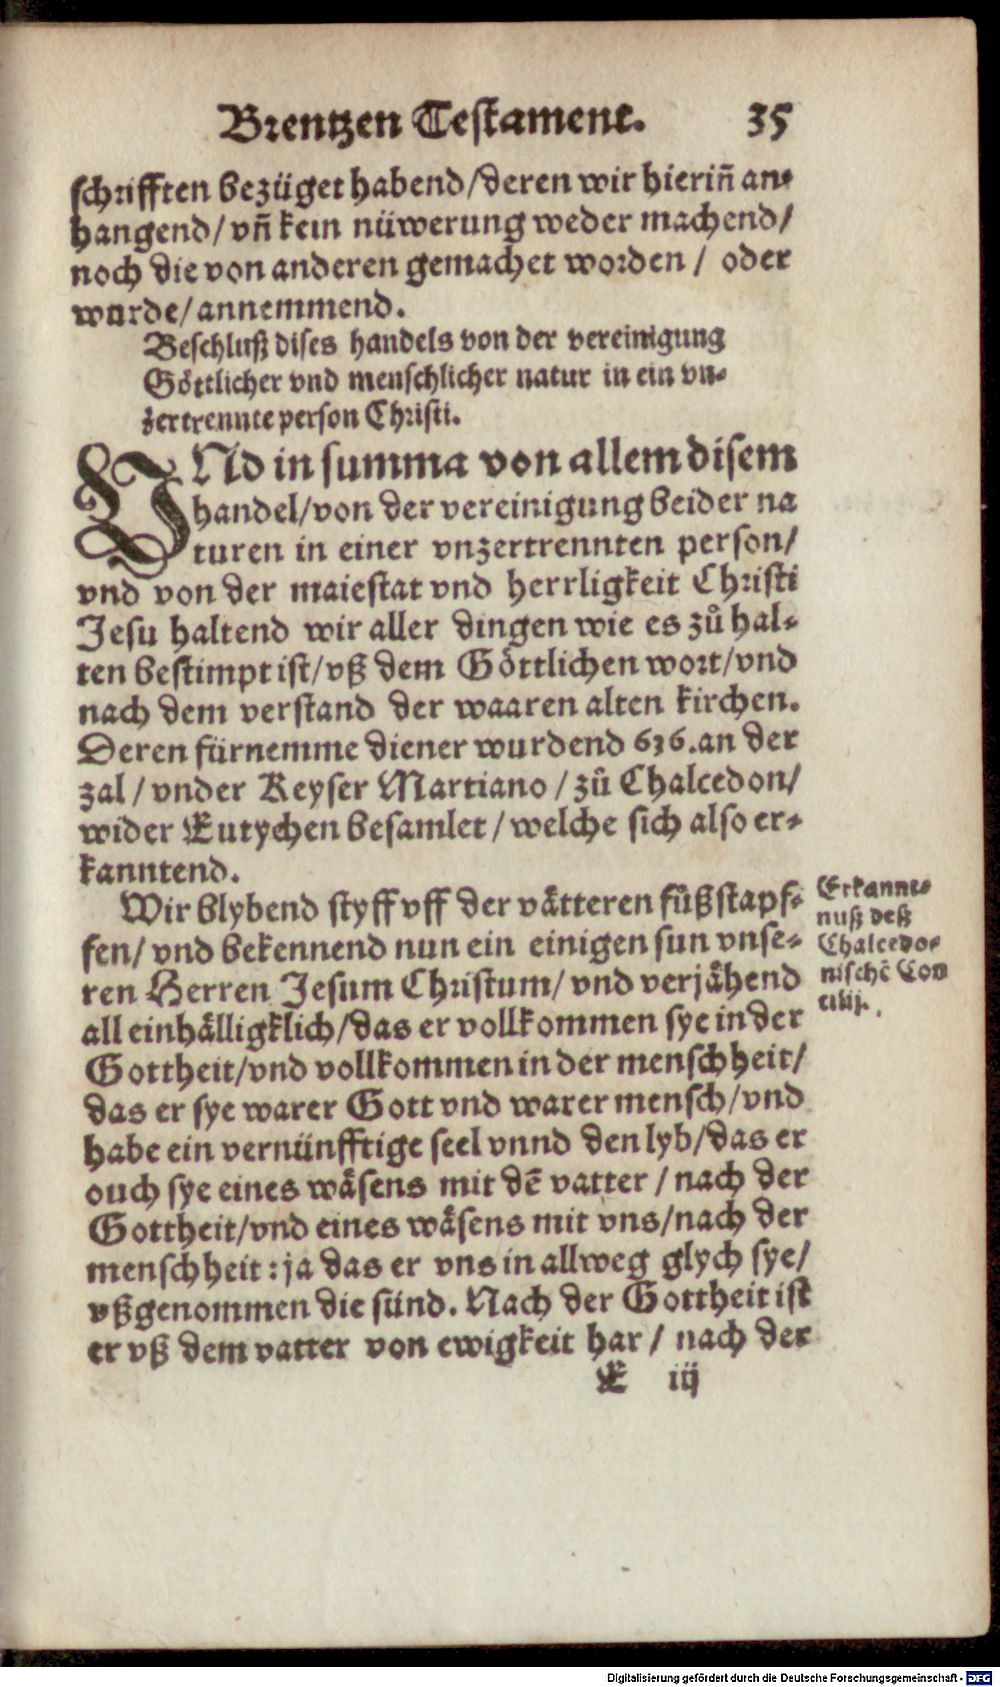 Brentzen Testament. 35
schrifften bezüget habend/deren wir hierin̄ an-
hangend/ vn̄ kein nüwerung weder machend/
noch die von anderen gemachet worden / oder
wurde/annemmend.
Beschluß dises handels von der vereinigung
Göttlicher vnd menschlicher natur in ein vn-
zertrennte person Christi.
VNd in summa von allem disem
handel/von der vereinigung beider na
turen in einer vnzertrennten person/
vnd von der maiestat vnd herrligkeit Christi
Jesu haltend wir aller dingen wie es zů hal-
ten bestimpt ist/vß dem Göttlichen wort/vnd
nach dem verstand der waaren alten kirchen.
Deren fürnemme diener wurdend 636.an der
zal/vnder Keyser Martiano/zů Chalcedon/
wider Eutychen besamlet/welche sich also er-
kanntend.
Wir blybend styff vff der vätteren fůßstapf-
fen/ vnd bekennend nun ein einigen sun vnse-
ren Herren Jesum Christum/ vnd verjähend
all einhälligklich/das er vollkommen sye in der
Gottheit/vnd vollkommen in der menschheit/
das er sye warer Gott vnd warer mensch/vnd
habe ein vernünfftige seel vnnd den lyb/das er
ouch sye eines wäsens mit dē vatter / nach der
Gottheit/vnd eines wäsens mit vns/nach der
menschheit:ja das er vns in allweg glych sye/
vßgenommen die sünd. Nach der Gottheit ist
er vß dem vatter von ewigkeit har / nach der
E iij
Erkannt-
nuß deß
Chalcedo-
nischē Con
cilij.
Digitalisierung gefördert durch die Deutsche Forschungsgemeinschaft - DFG